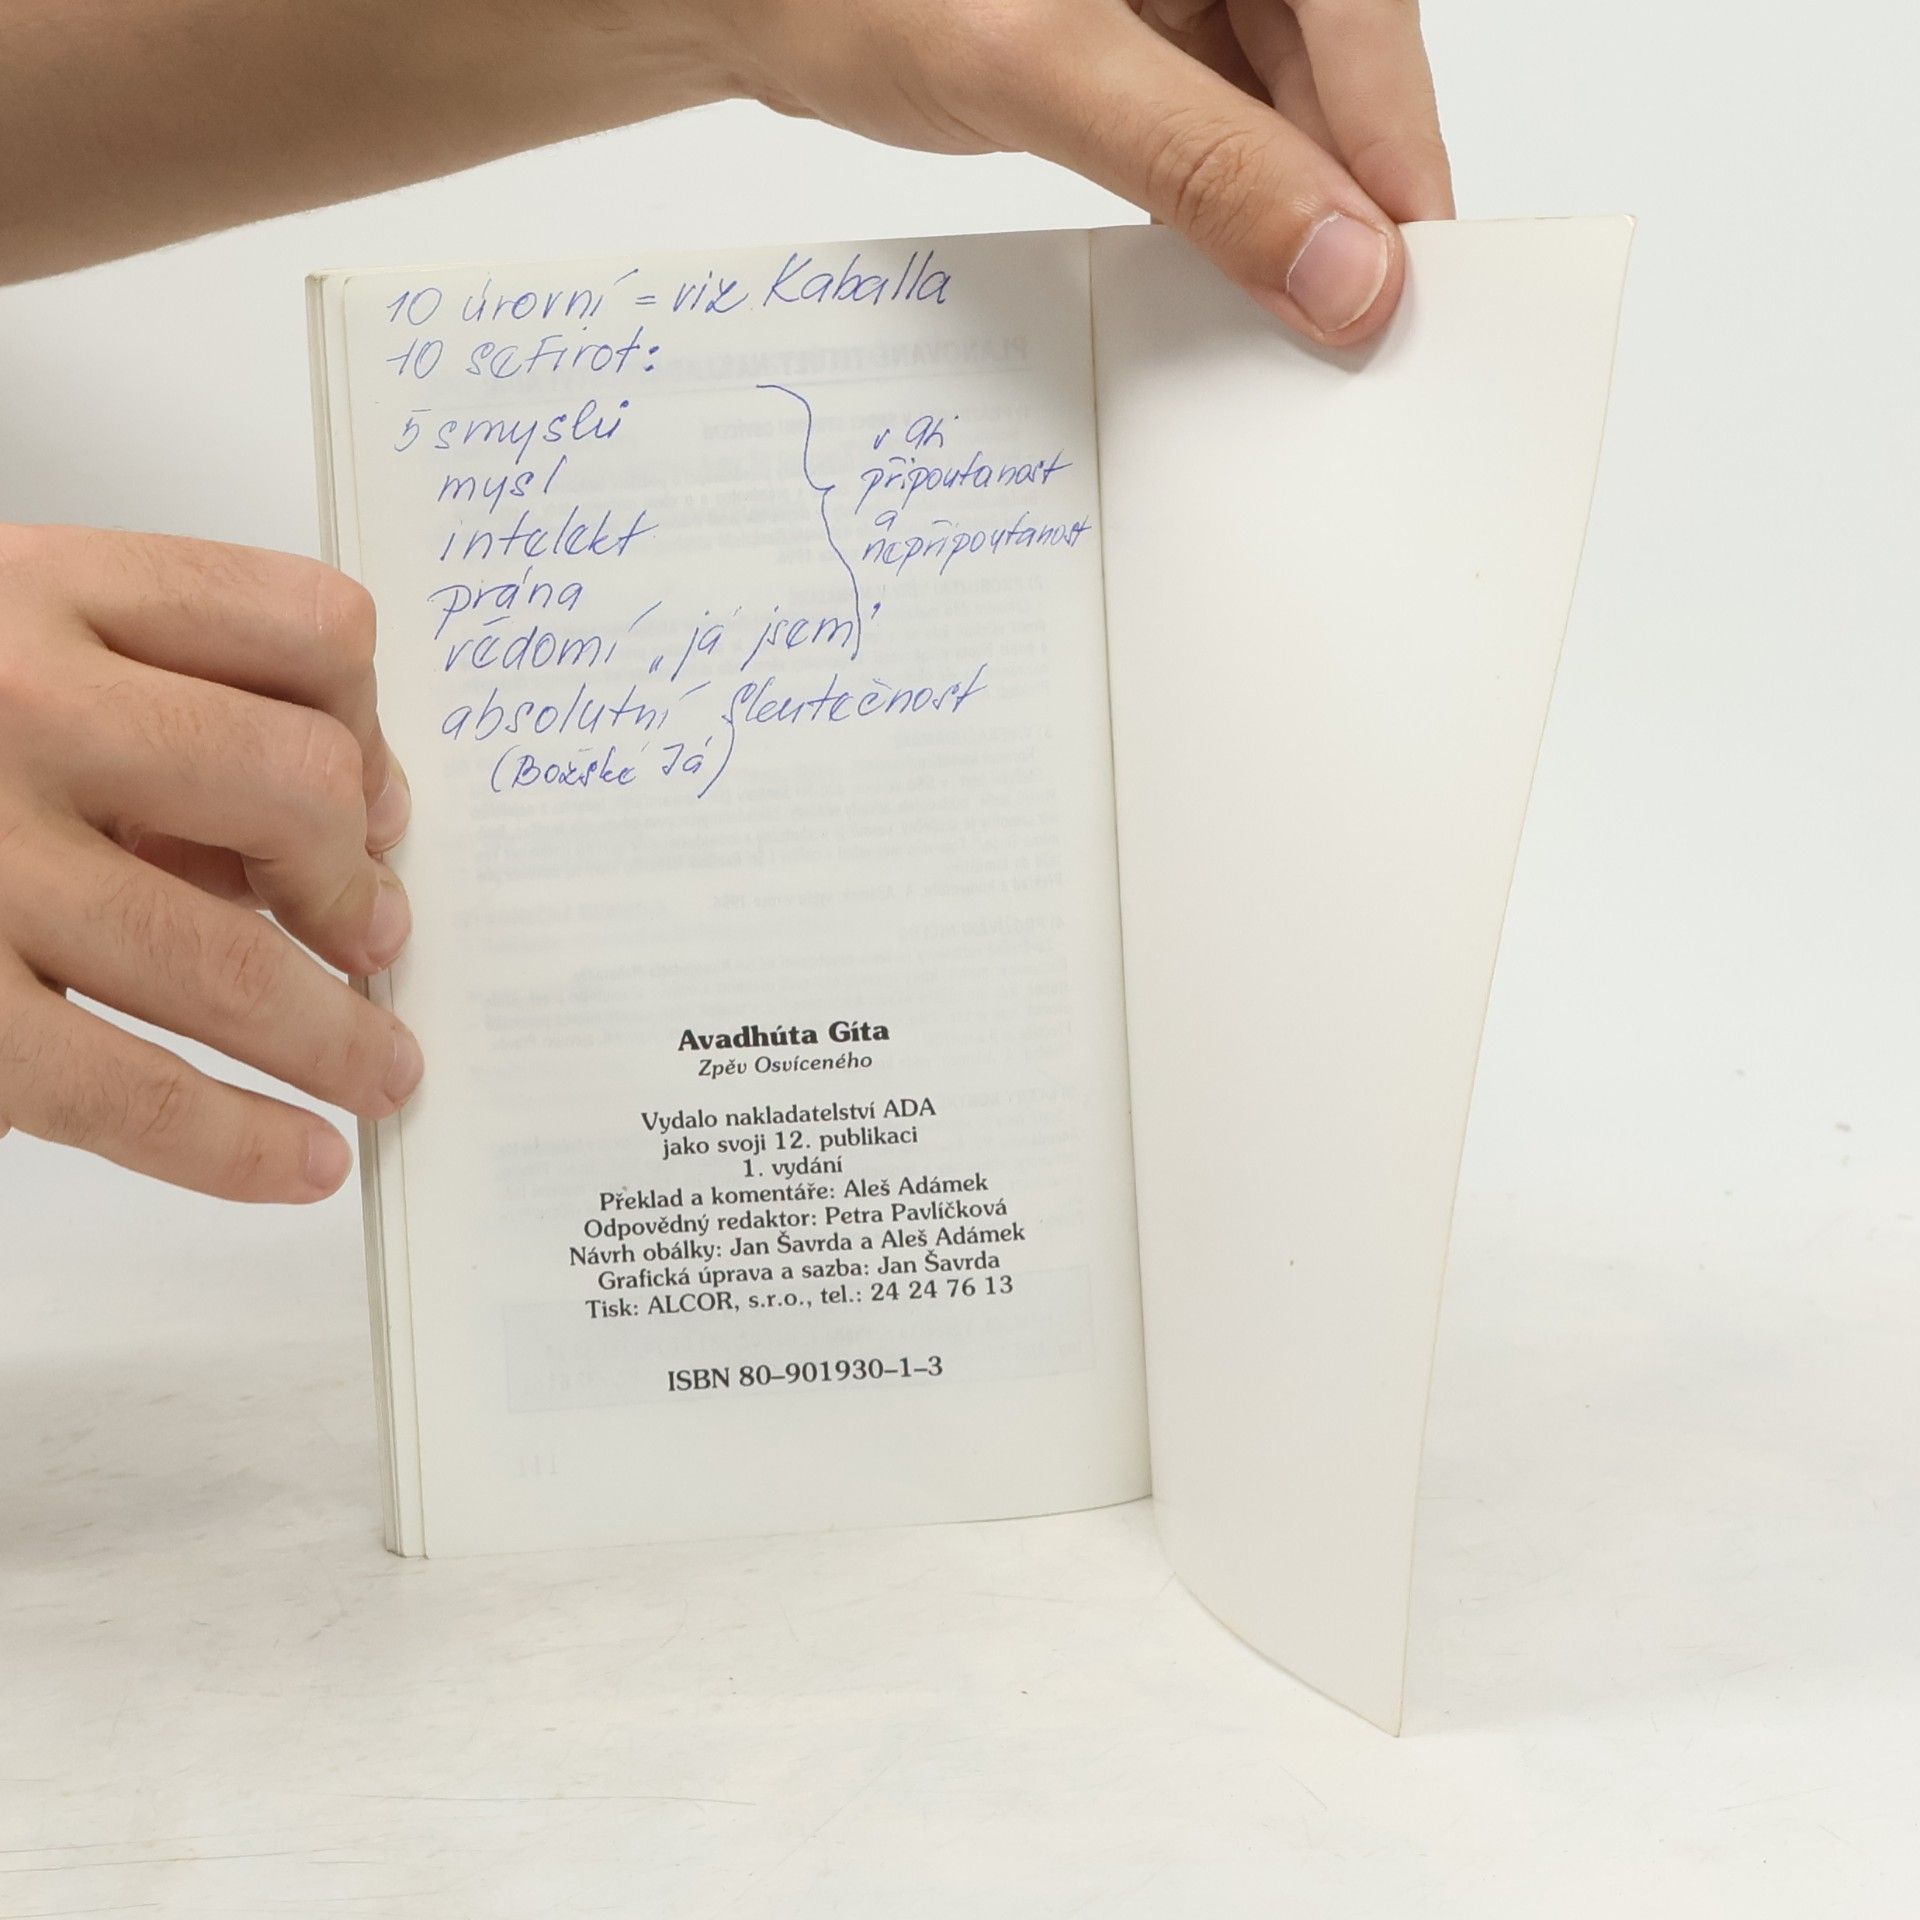 10 úrovní = viz Kaballa
10 sefirot:
5 smyslů
mysl
intelekt
prána
vědomí „já jsem"
absolutní skutečnost
(Božské Já)
připoutanost
a
nepřipoutanost
Avadhúta Gíta
Zpěv Osvíceného
Vydalo nakladatelství ADA
jako svoji 12. publikaci
1. vydání
Překlad a komentáře: Aleš Adámek
Odpovědný redaktor: Petra Pavlíčková
Návrh obálky: Jan Šavrda a Aleš Adámek
Grafická úprava a sazba: Jan Šavrda
Tisk: ALCOR, s.r.o., tel.: 24 24 76 13
ISBN 80–901930–1–3